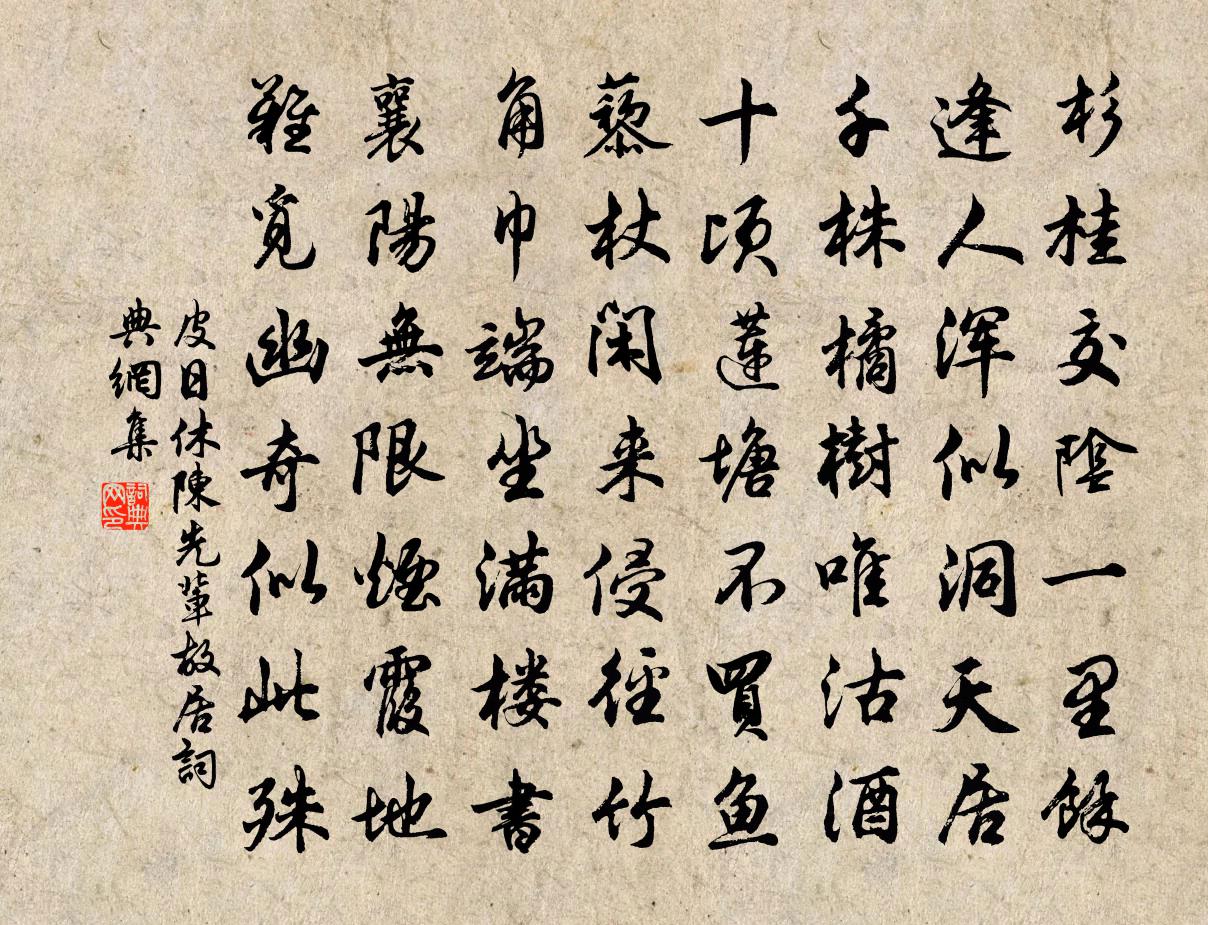 杉桂交陰一里餘
逢人渾似洞天居
千株橘樹唯沽酒
十頃蓮塘不買魚
藜杖閑来侵徑竹
角巾端坐满楼書
襄陽無限煙霞地
難覓幽奇似此殊
皮日休陳先輩故居詞
典網集
詞典网印